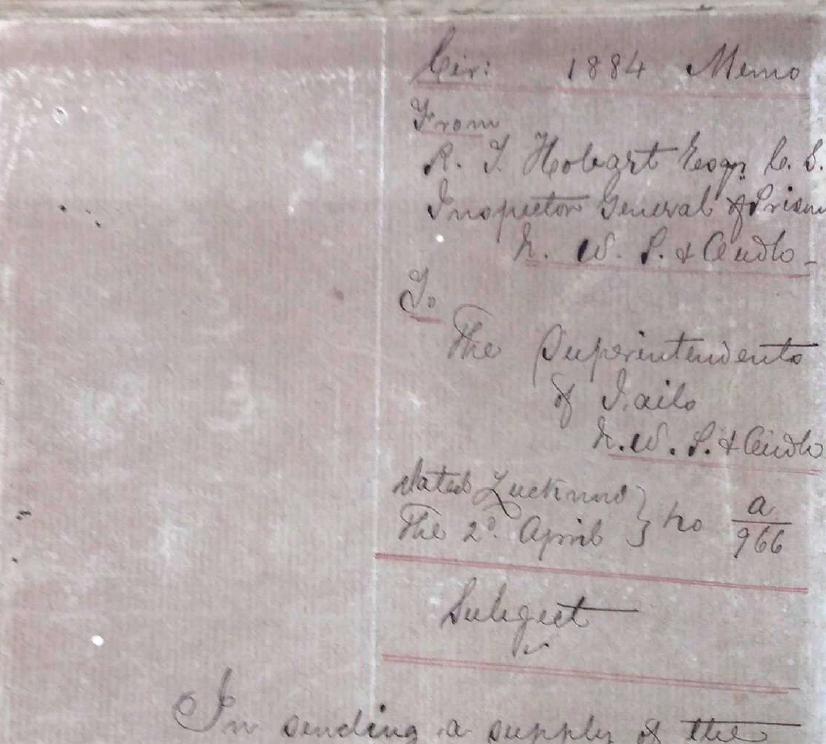 Cir: 1884 Memo
From
R. T. Hobart Esqr. C. S.
Inspector General of Prison
N. W. P. & Oudh -
To
The Superintendents
of Jails
N. W. P. & Oudh
dated Lucknow } No a/966
The 2d. April
Subject
In sending a supply of the